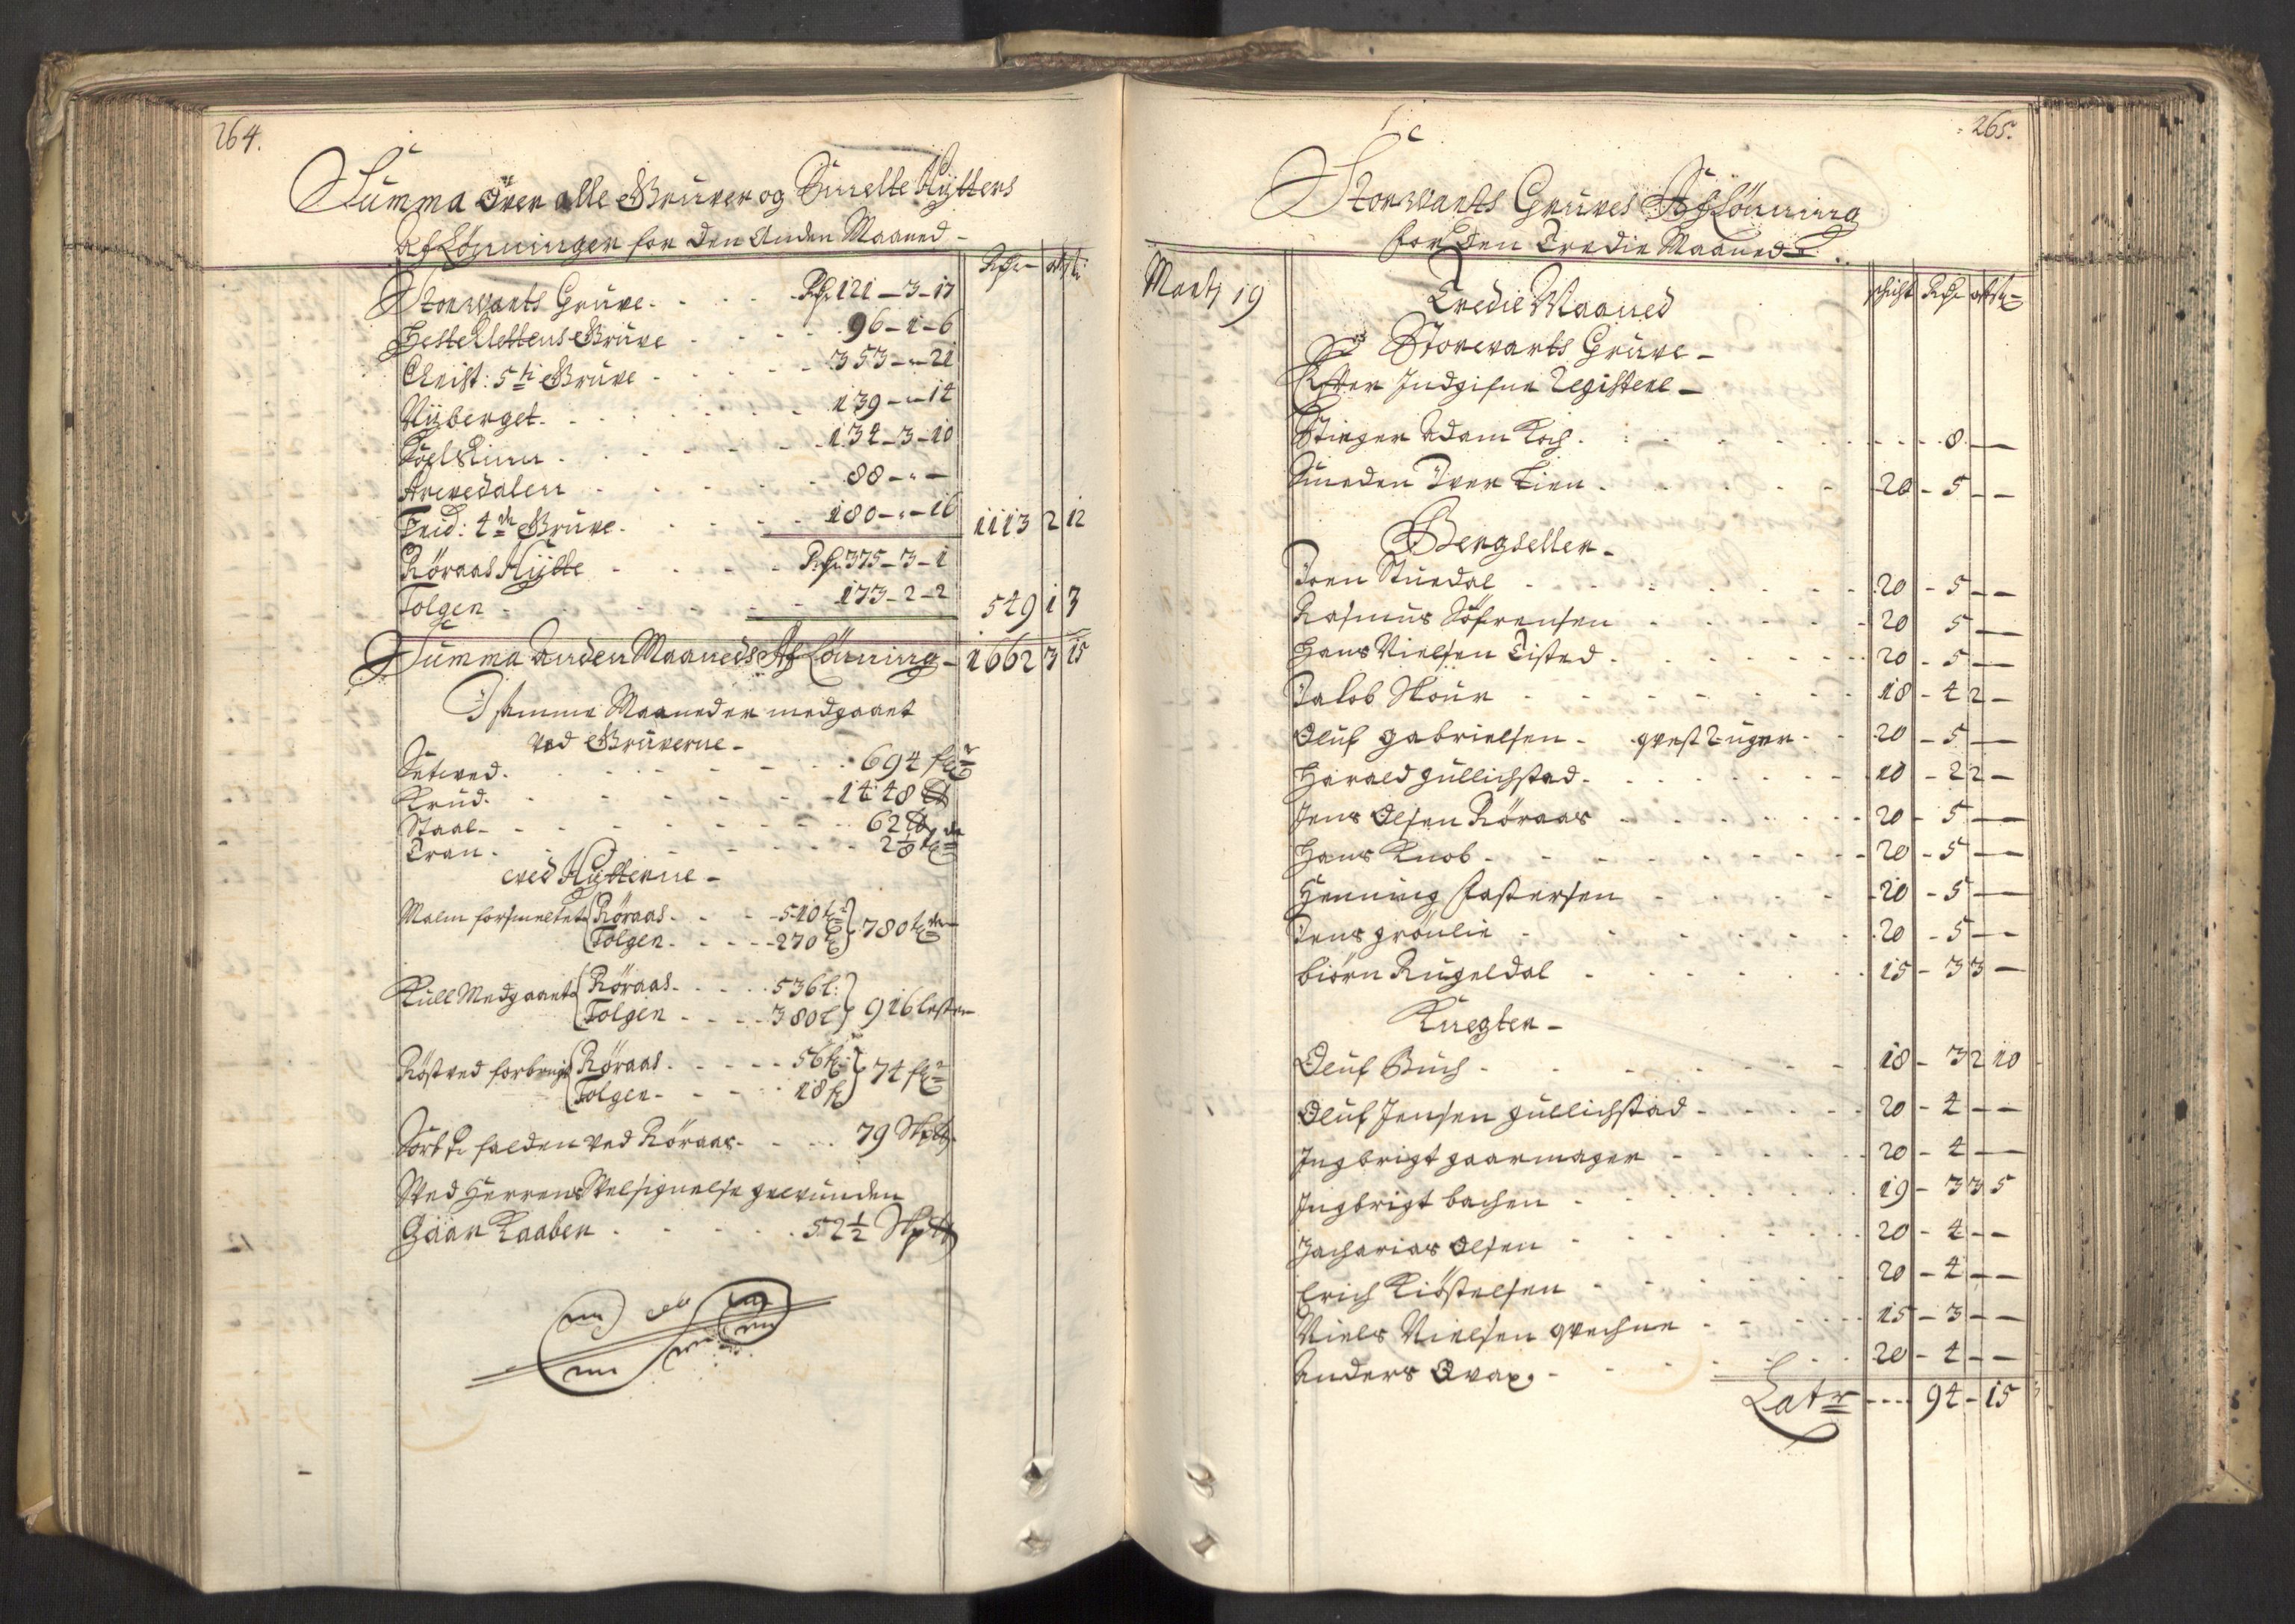 264.
Summa över alle Gruver og Smelte Hytters
AfLönninger for den Anden Maaned -
Rdr ort s:
Storwarts Gruve - Rdr 121 - 3 - 17
Hestklettens Gruve 96 - 1 - 6
Christ: 5ti Gruve 353 - " - 21
Nyberget 139 - " - 14
134 - 3 - 10
Arvedalen 88 - " -
Frid: 4ti Gruve 180 - " - 16 1113 2 12
Röraas Hytte Rdr 375 - 3 - 1
Tolgen 173 - 2 - 2 549 1 3
Summa Anden Maaneds AfLönning - 1662 3 15
I samme Maaneder medgaaet
ved Gruverne -
Setwed 694
Krud 1448 ℔
Staal 62 ℔
Tran 2 1/8
ved Hytterne -
Malm forsmeltet Röraas 510
Tolgen 270 780
Kull Medgaaet Röraas 536 l:
Tolgen 380 l 916 lester
Röstved forbrugt Röraas 56
Tolgen 18 74
falden ved Röraas 79 Skp℔
Ved Herrens Velsignelse gevunden
Gaar Kaaber 52 1/2 Skp℔
265.
Storwarts Gruves AfLönning
for den Tredie Maaned
Marty 19
Tredie Maaned
schicht Rdr ort s
Storvarts Gruve -
Efter Indgifne Registere -
Stiger Adam Koch 8 -
Smeden Iver Lien 20 - 5 - -
Bergseller -
Joen Stuedal 20 - 5 - -
Rasmus Söfrensen 20 5 -
Hans Nielsen Tisted 20 - 5 -
Jakob Skour 18 - 4 2 -
Oluf Gabrielsen - 20 - 5 -
Harald Gullichstad 10 - 2 2 -
Jens Olsen Röraas 20 - 5 -
Hans Knob 20 - 5 -
Henning Castersen 20 - 5 -
Jens Gröulie 20 - 5 - -
Biörn Rugeldal 15 - 3 3 -
Knegter -
Oluf Buch 18 - 3 2 10
Oluf Jensen Gullichstad 20 - 4 - -
Ingbrigt Gaarmager 20 - 4 -
Ingbrigt Bachen 19 - 3 3 5
Zacharias Olsen 20 - 4 - -
Erich Kiöstelsen 20 - 4 - -
Niels Nielsen 15 - 3 - -
Anders 20 - 4 - -
Latr 94 - 15